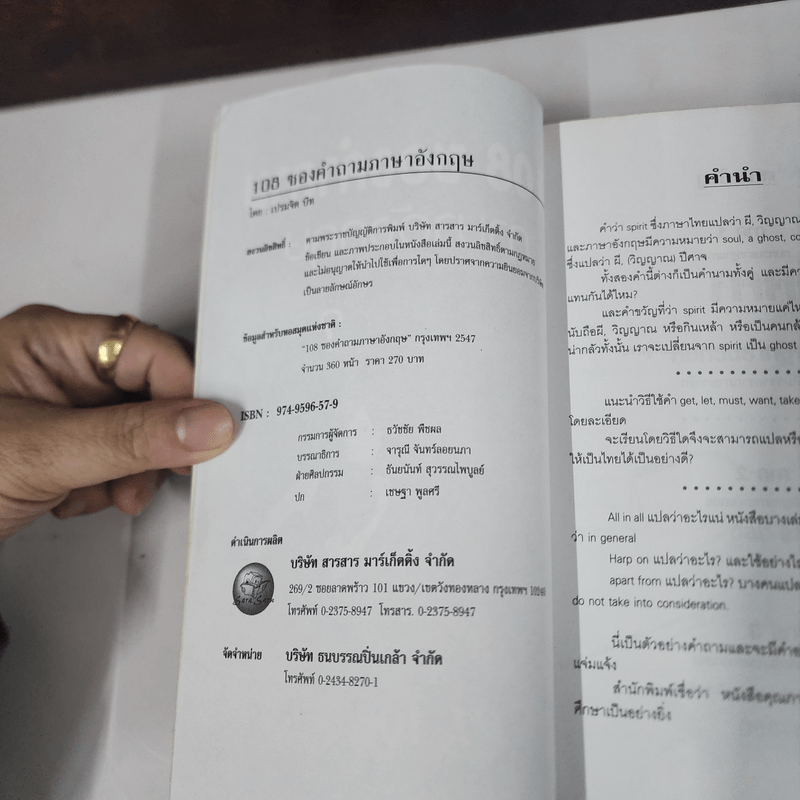 108 ซองคำถามภาษาอังกฤษ
โดย : เปรมจิต บีท
สงวนลิขสิทธิ์ : ตามพระราชบัญญัติการพิมพ์ บริษัท สารสาร มาร์เก็ตติ้ง จำกัด
ข้อเขียน และภาพประกอบในหนังสือเล่มนี้ สงวนลิขสิทธิ์ตามกฎหมาย
และไม่อนุญาตให้นำไปใช้เพื่อการใดๆ โดยปราศจากความยินยอมจาก
เป็นลายลักษณ์อักษร
ข้อมูลสำหรับหอสมุดแห่งชาติ :
"108 ซองคำถามภาษาอังกฤษ" กรุงเทพฯ 2547
จำนวน 360 หน้า ราคา 270 บาท
ISBN : 974-9596-57-9
กรรมการผู้จัดการ : ธวัชชัย พืชผล
บรรณาธิการ : จารุณี จันทร์ลอยนภา
ฝ่ายศิลปกรรม : ธันยนันท์ สุวรรณไพบูลย์
ปก : เชษฐา พูลศรี
ดำเนินการผลิต
บริษัท สารสาร มาร์เก็ตติ้ง จำกัด
269/2 ซอยลาดพร้าว 101 แขวง/เขตวังทองหลาง กรุงเทพฯ
โทรศัพท์ 0-2375-8947 โทรสาร. 0-2375-8947
จัดจำหน่าย บริษัท ธนบรรณปิ่นเกล้า จำกัด
โทรศัพท์ 0-2434-8270-1
คำนำ
คำว่า spirit ซึ่งภาษาไทยแปลว่า ผี, วิญญาณ
และภาษาอังกฤษมีความหมายว่า soul, a ghost,
ซึ่งแปลว่า ผี, (วิญญาณ) ปีศาจ
ทั้งสองคำนี้ต่างก็เป็นคำนามทั้งคู่ และมี
แทนกันได้ไหม?
และคำขวัญที่ว่า spirit มีความหมายแค่
นับถือผี, วิญญาณ หรือกินเหล้า หรือเป็นคน
น่ากลัวทั้งนั้น เราจะเปลี่ยนจาก spirit เป็น ghost
แนะนำวิธีใช้คำ get, let, must, want, take
โดยละเอียด
จะเรียนโดยวิธีใดจึงจะสามารถแปล
ให้เป็นไทยได้เป็นอย่างดี?
All in all แปลว่าอะไรแน่ หนังสือบาง
ว่า in general
Harp on แปลว่าอะไร? และใช้
apart from แปลว่าอะไร? บางคน
do not take into consideration.
นี่เป็นตัวอย่างคำถามและจะมี
แจ่มแจ้ง
สำนักพิมพ์เชื่อว่า หนังสือ
ศึกษาเป็นอย่างยิ่ง